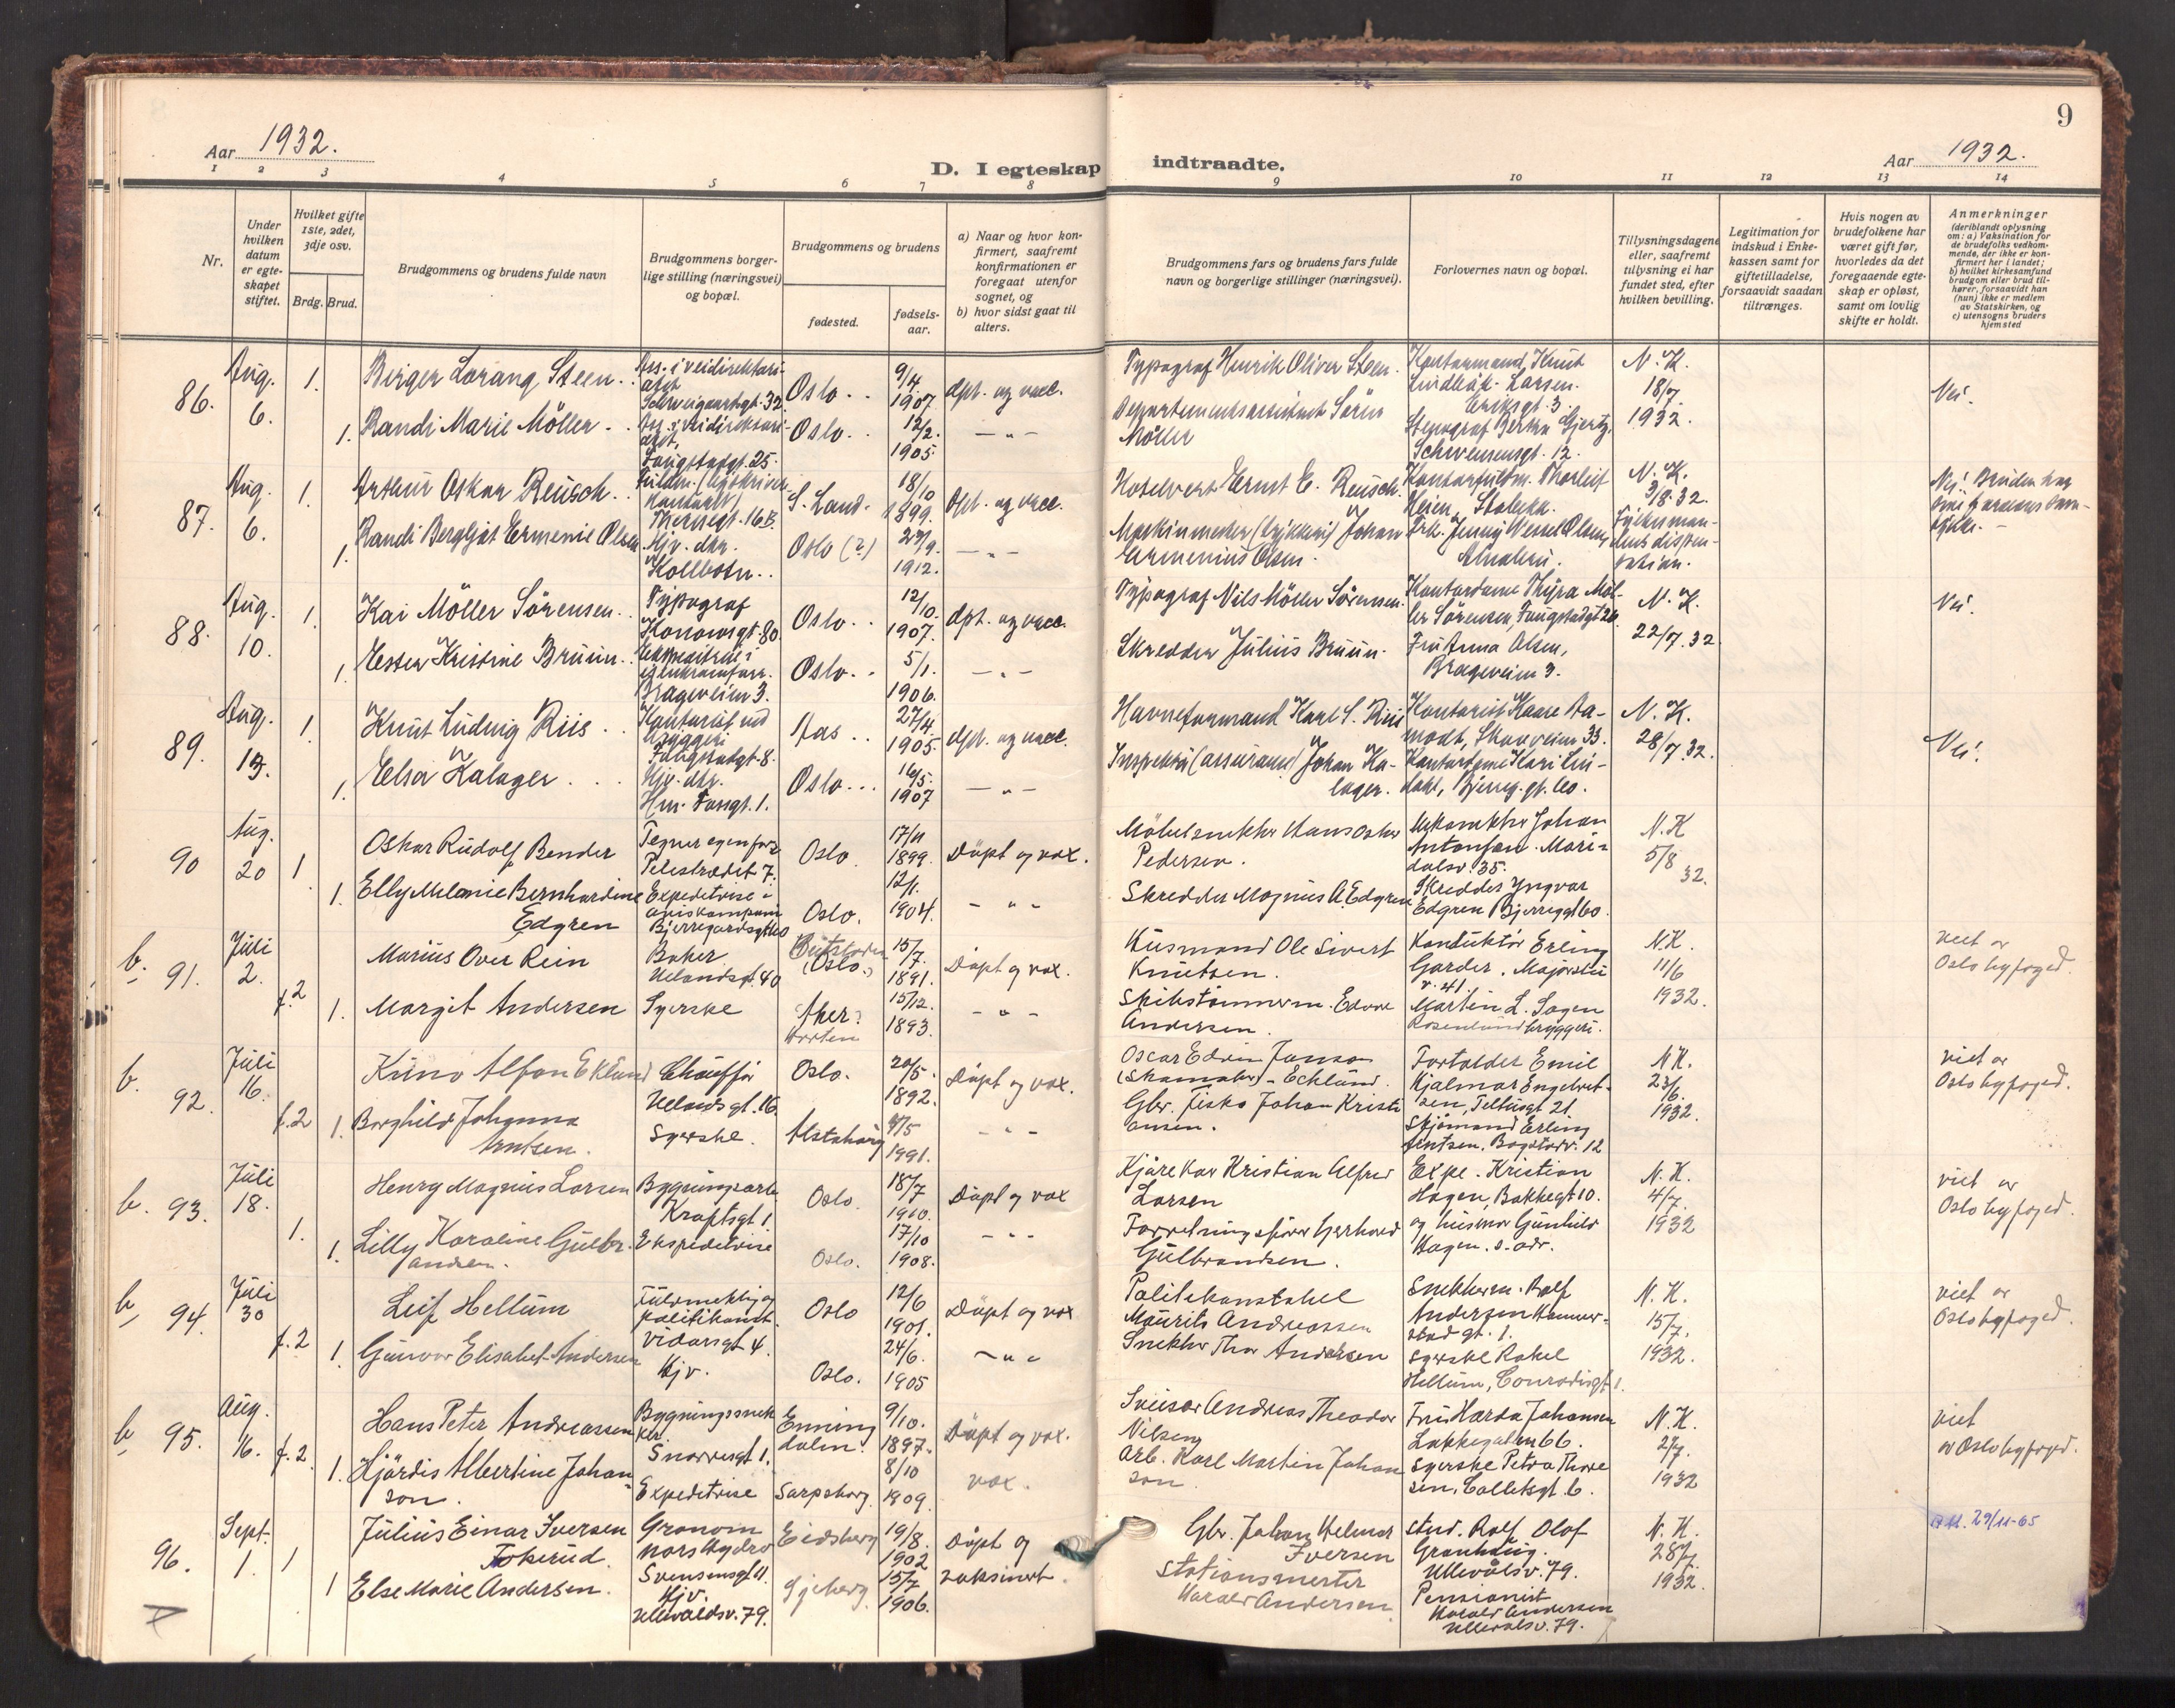 9
Aar 1932.
D. I egteskap indtraadte.
Aar 1932.
1 2 3 4 5 6 7 8 9 10 11 12 13 14
Nr.
Under hvilken datum er egteskapet stiftet.
Hvilket gifte 1ste, 2det, 3dje osv.
Brdg. Brud.
Brudgommens og brudens fulde navn
Brudgommens borgerlige stilling (næringsvei) og bopæl.
Brudgommens og brudens
fødested.
fødselsaar.
a) Naar og hvor konfirmert, saafremt konfirmationen er foregaat utenfor sognet, og
b) hvor sidst gaat til alters.
Brudgommens fars og brudens fars fulde navn og borgerlige stillinger (næringsvei).
Forlovernes navn og bopæl.
Tillysningsdagene eller, saafremt tillysning ei har fundet sted, efter hvilken bevilling.
Legitimation for indskud i Enkekassen samt for giftetilladelse, forsaavidt saadan tiltrænges.
Hvis nogen av brudefolkene har været gift før, hvorledes da det foregaaende egteskap er opløst, samt om lovlig skifte er holdt.
Anmerkninger (deriblandt oplysning om: a) Vaksination for de brudefolks vedkommende, der ikke er konfirmert her i landet; b) hvilket kirkesamfund brudgom eller brud tilhører, forsaavidt han (hun) ikke er medlem av Statskirken, og c) utensogns bruders hjemsted
86. Aug. 6. 1. Birger Lorang Steen. Ass. i veidirektoratet Schweigaardsgt. 32. Oslo. 9/4 1907 døpt. og vacc. Typograf Henrik Oliver Steen. Kontormand Knut Lindbäk-Larsen. Eriksgt. 3. N. K. 18/7. 1932. Nei.
1. Randi Marie Möller. Ass. i veidirektoratet, Fougstadgt. 25. Oslo. 12/2. 1905. — " — Departementsassistent Sörin Möller Stenograf Bertha Gjertz, Schwensensgt. 12.
87. Aug. 6. 1. Arthur Oskar Reusch. Theresegt. 16 B. S. Land. 18/10 1899. Dpt. og vacc. Hotelvert Ernst E. Reusch. Kontorfullm. Thorleif Heien, Stabekk. N. K. 3/8. 32. Fylkesmandens dispensation. Nei! Bruden har
1. Randi Bergljot Ermenie Olsen Hjv. dtr. Kollbotn. Oslo (?) 29/9. 1912. — " — Maskinmester (trykkeri) Johan Ermenius Olsen. Frk. Jenny Wessel Olsen,
88. Aug. 10. 1. Kai Möller Sörensen. Typograf Konowsgt. 80. Oslo. 12/10. 1907. dpt. og vacc. Typograf Nils Möller Sörensen. Kontordame Thyra Möller Sörensen, Fougstadgt 26. N. K. 22/7. 32 Nei.
1. Ester Kristine Bruun. Ekspeditrise i Brageveien 3. Oslo. 5/1. 1906. — " — Skredder Julius Bruun. Fru Anna Olsen, Brageveien 3.
89. Aug. 13. 1. Knut Ludvig Riis. Kontorist ved bryggeri Fougstadgt. 8. Aas. 27/4. 1905 dpt. og vacc. Havneformand Karl S. Riis Kontorist Kaare Aamodt, Skovveien 33. N. K. 28/7. 32. Nei!
1. Elsa Kalager. Hjv. dtr. Oslo. 16/5. 1907 — " — Inspektör (assurance) Johan Kalager. Kontordame Kari Lindahl, Bjerreg. gt. 60.
90 Aug. 20 1 Oskar Rudolf Bender Tegner egen forr. Pilestrædet 7. Oslo 17/11 1899. Döpt og vax. Möbelsnekker Hans Oskar Pedersen. Mekaniker Johan Antonsen. Maridalsv. 35. N. K 5/8 32.
1. Elly Melanie Bernhardine Edgren Expeditrise i aviskompani Bjerregardsgt 60 Oslo. 12/1. 1904. - " - Skredder Magnus A. Edgren Skredder Yngvar Edgren Bjerreggt 60.
b. 91. Juli 2. f. 2 Marius Over Rein Baker Uelandsgt. 40 Beitstaden (Oslo.) 15/7. 1891. Döpt og vax. Husmand Ole Sivert Knutsen. Konduktör Erling Garder. Majorstu v. 41. N. K. 11/6 1932. viet av Oslo byfoged.
1. Margit Andersen Syerske Aker? Horten 15/12. 1893. - " - Skibstömmerm. Edvar Andersen. Martin L. Sagen Rosenlund bryggeri.
b. 92. Juli 16. f. 2 Kuno Alfon Eklund Chauffør Uelandsgt. 16. Oslo. 20/5. 1892. Döpt og vax. Oscar Edvin Janson (Skomaker) - Ecklund. Fortolder Emil Hjalmar Engebretsen, Teltusgt 21. N. K. 23/6. 1932. viet av Oslo byfoged.
1. Borghild Johanna Arntsen. Syerske. Alstahaug 4/5 1991. - " - Gbr. fisker Johan Kristiansen. Sjömand Erling Arntsen. Bogstadv. 12
b. 93. Juli 18. 1. Henry Magnus Larsen Bygningsarb. Kraftsgt 1. Oslo. 18/7 1910. Döpt og vax Kjörekar Kristian Alfred Larsen Expe. Kristian Hagen, Bakkegt 10. N. K. 4/7. 1932 viet av Oslo byfoged.
1. Lilly Karoline Gulbrandsen. Ekspeditrise Oslo. 17/10 1908. - " - Forretningsförer Gerhard Gulbrandsen. og husmor Gunhild Hagen. s. adr.
b, 94. Juli 30 f. 2 Leif Hellum Fuldmektig og politikonst. Vidarsgt 4. Oslo 12/6 1901. Döpt og vax Politikonstabel Maurits Andreassen Snekkerm. Rolf Andersen Hammerstad gt. 1. N. K. 15/7. 1932. viet av Oslo byfoged.
1. Gunvor Elisabet Andersen Hjv. Oslo. 24/6. 1905 - " - Snekker Thor Andersen Syerske Rakel Hellum, Conradisgt 1.
b, 95. Aug. 16. f. 2. Hans Peter Andreassen Bygningssnekker Snorresgt 1. Enningdalen. 9/10. 1897. Döpt og vax. Sveiser Andreas Theodor Nilsen Fru Harda Johansen Lakkegaten 66. N. K. 2/7. 1932 viet av Oslo byfoged.
1. Hjördis Albertine Johanson. Expeditrise Sarpsborg. 8/10 1909. vax. Arb. Karl Martin Johanson Syerske Petra Thoresen, Colletsgt. 6.
96. Sept. 1. 1 Julius Einar Iversen Tokerud. Svensensgt 11. Eidsberg 19/8. 1902 Döpt og vaksinert. Gbr. Johan Helmer Iversen Stud. Rolf Olof Granhaug. Ullevålsv. 79. N. K. 28/7. 1932. 29/11-65
1 Else Marie Andersen. Hjv. Ullevaldsv. 79. Gjeberg 15/7 1906. Stationsmester Harald Andersen Pensionist Harald Andersen Ullevalsv. 79.